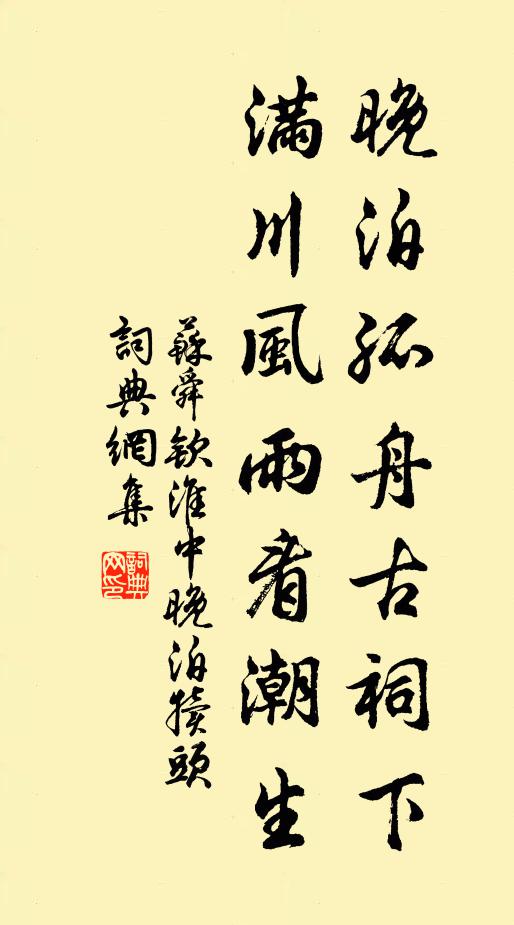 晚泊孤舟古祠下
滿川風雨看潮生
蘇舜欽淮中晚泊犢頭
詞典網集
詞典
网印